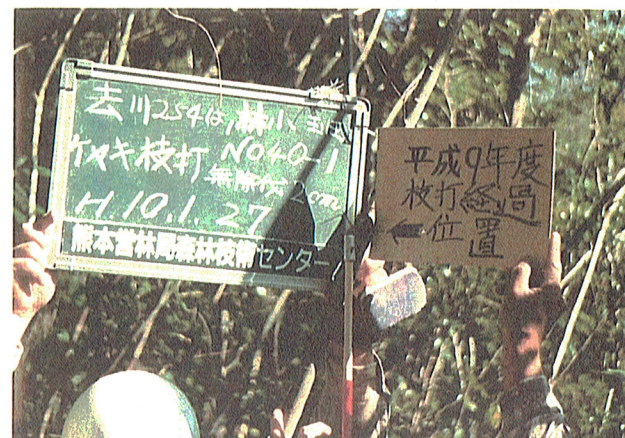 去川254は1林小 
ケヤキ枝打 NO40-1
無除伐 2cm
H.10.1.27
熊本営林局森林技術センター
平成9年度
枝打経過
位置